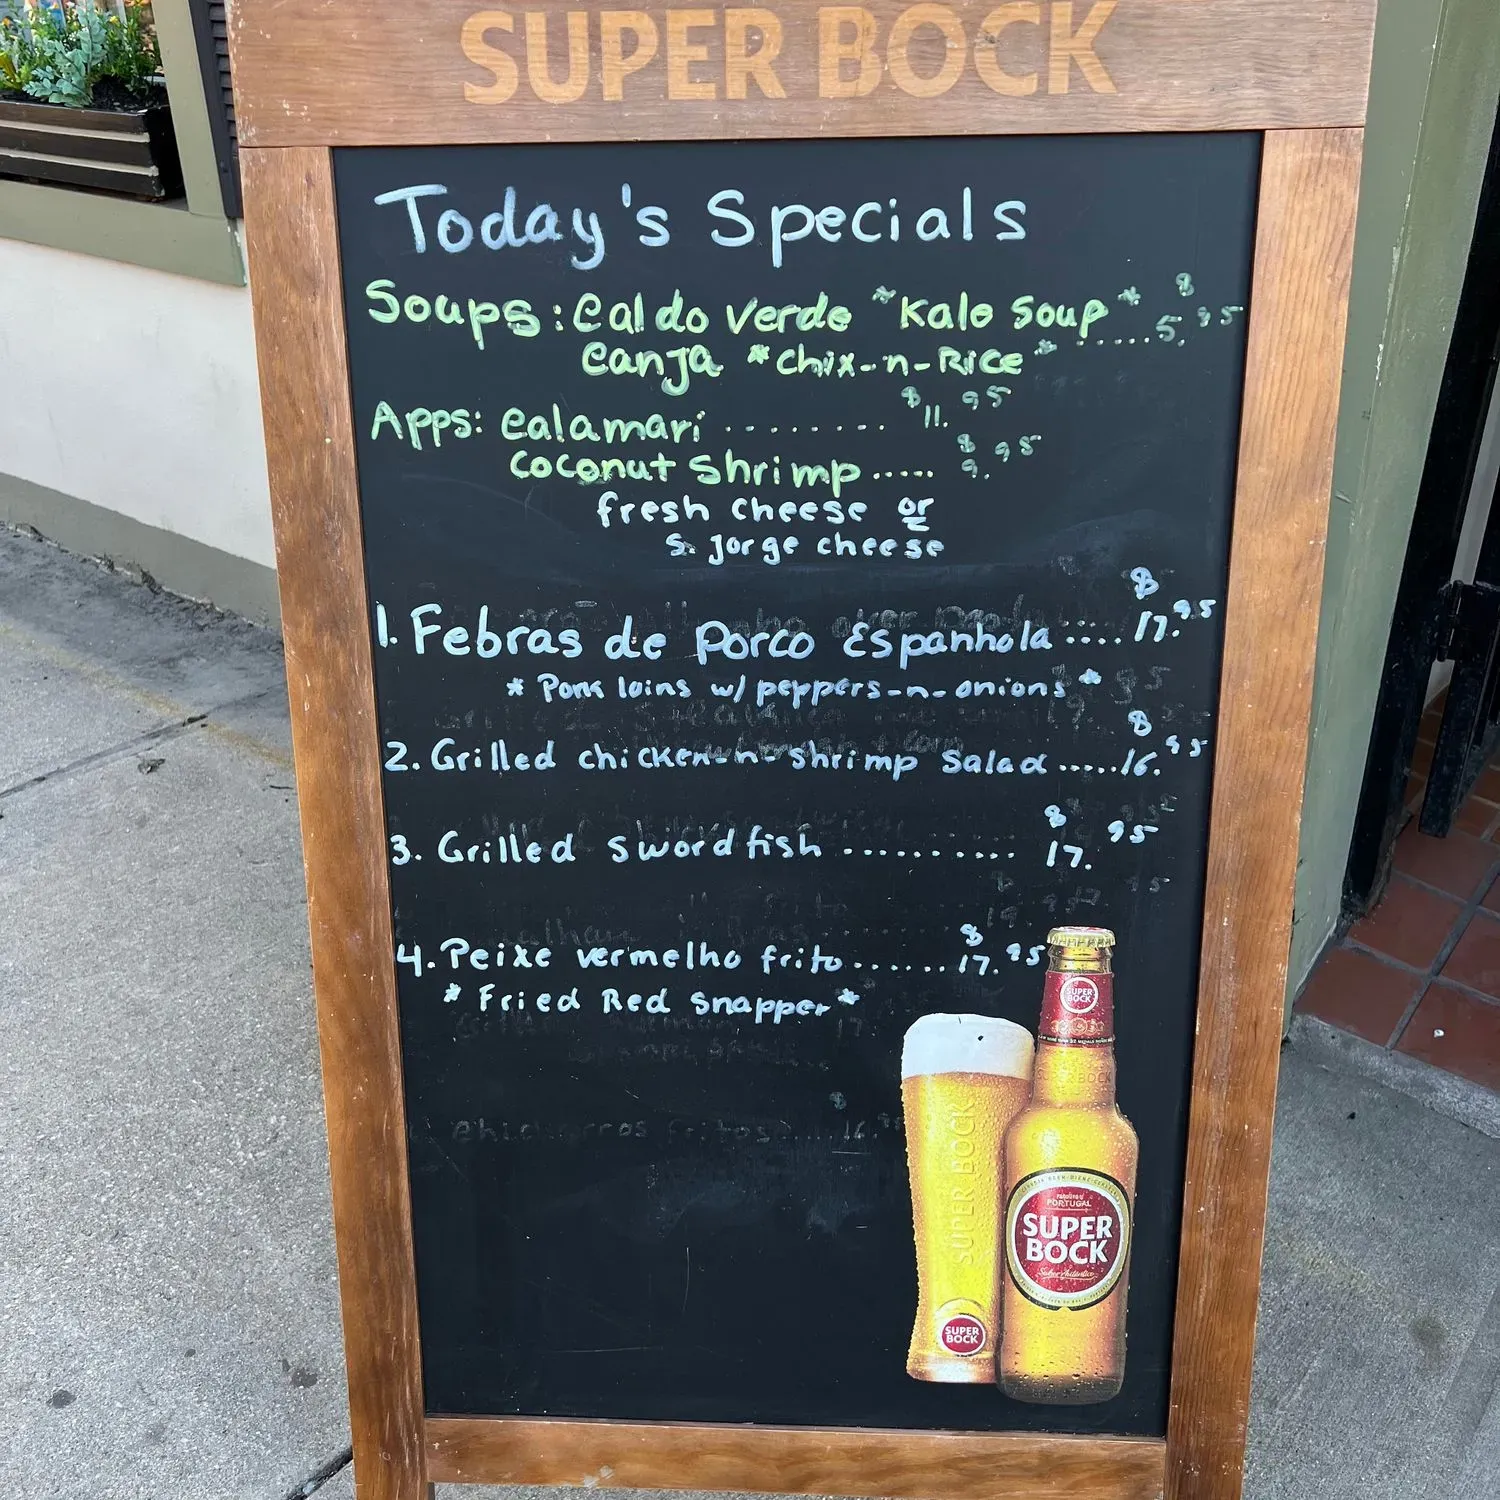 SUPER BOCK
Today's Specials
Soups: Caldo Verde *Kale Soup*
Canja *Chix-n-Rice* ..... $5.95
Apps: Calamari ........ $11.95
Coconut Shrimp ..... $9.95
fresh cheese or
S. Jorge cheese
1. Febras de Porco Espanhola .... $17.95
*Pork loins w/ peppers-n-onions*
2. Grilled chicken-n-shrimp Salad ..... $16.95
3. Grilled Swordfish .......... $17.95
4. Peixe vermelho frito ...... $17.95
*Fried Red Snapper*
Chicharros fritos
SUPER
BOCK
SUPER BOCK
SUPER BOCK
PORTUGAL
SUPER
BOCK
SUPER
BOCK